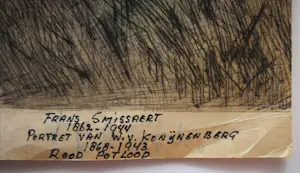 FRANS SMISSAERT
1862-1944
PORTRET VAN W.V. KONŸNENBERG
1868-1943
ROOD POTLOOD